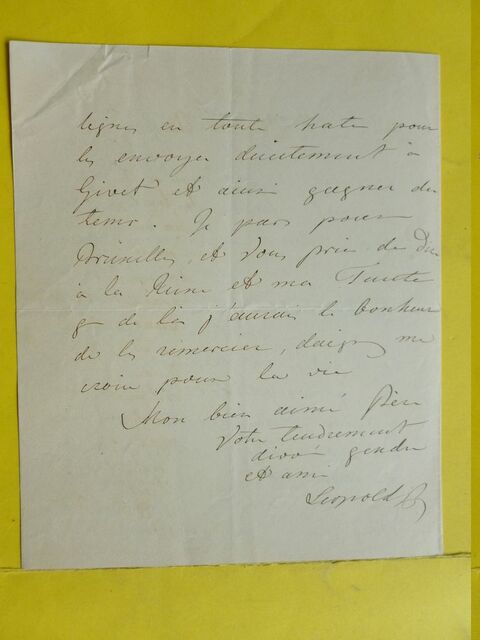 lignes en toute hate pour
les envoyer directement à
Givet et ainsi gagner du
tems. Je pars pour
Bruxelles, et vous prie de dire
à la Reine et ma Tante
q de là j'aurais le bonheur
de les remercier, daignez me
croire pour la vie
Mon bien aimé Père
Votre tendrement
dévoué gendre
et ami
Leopold